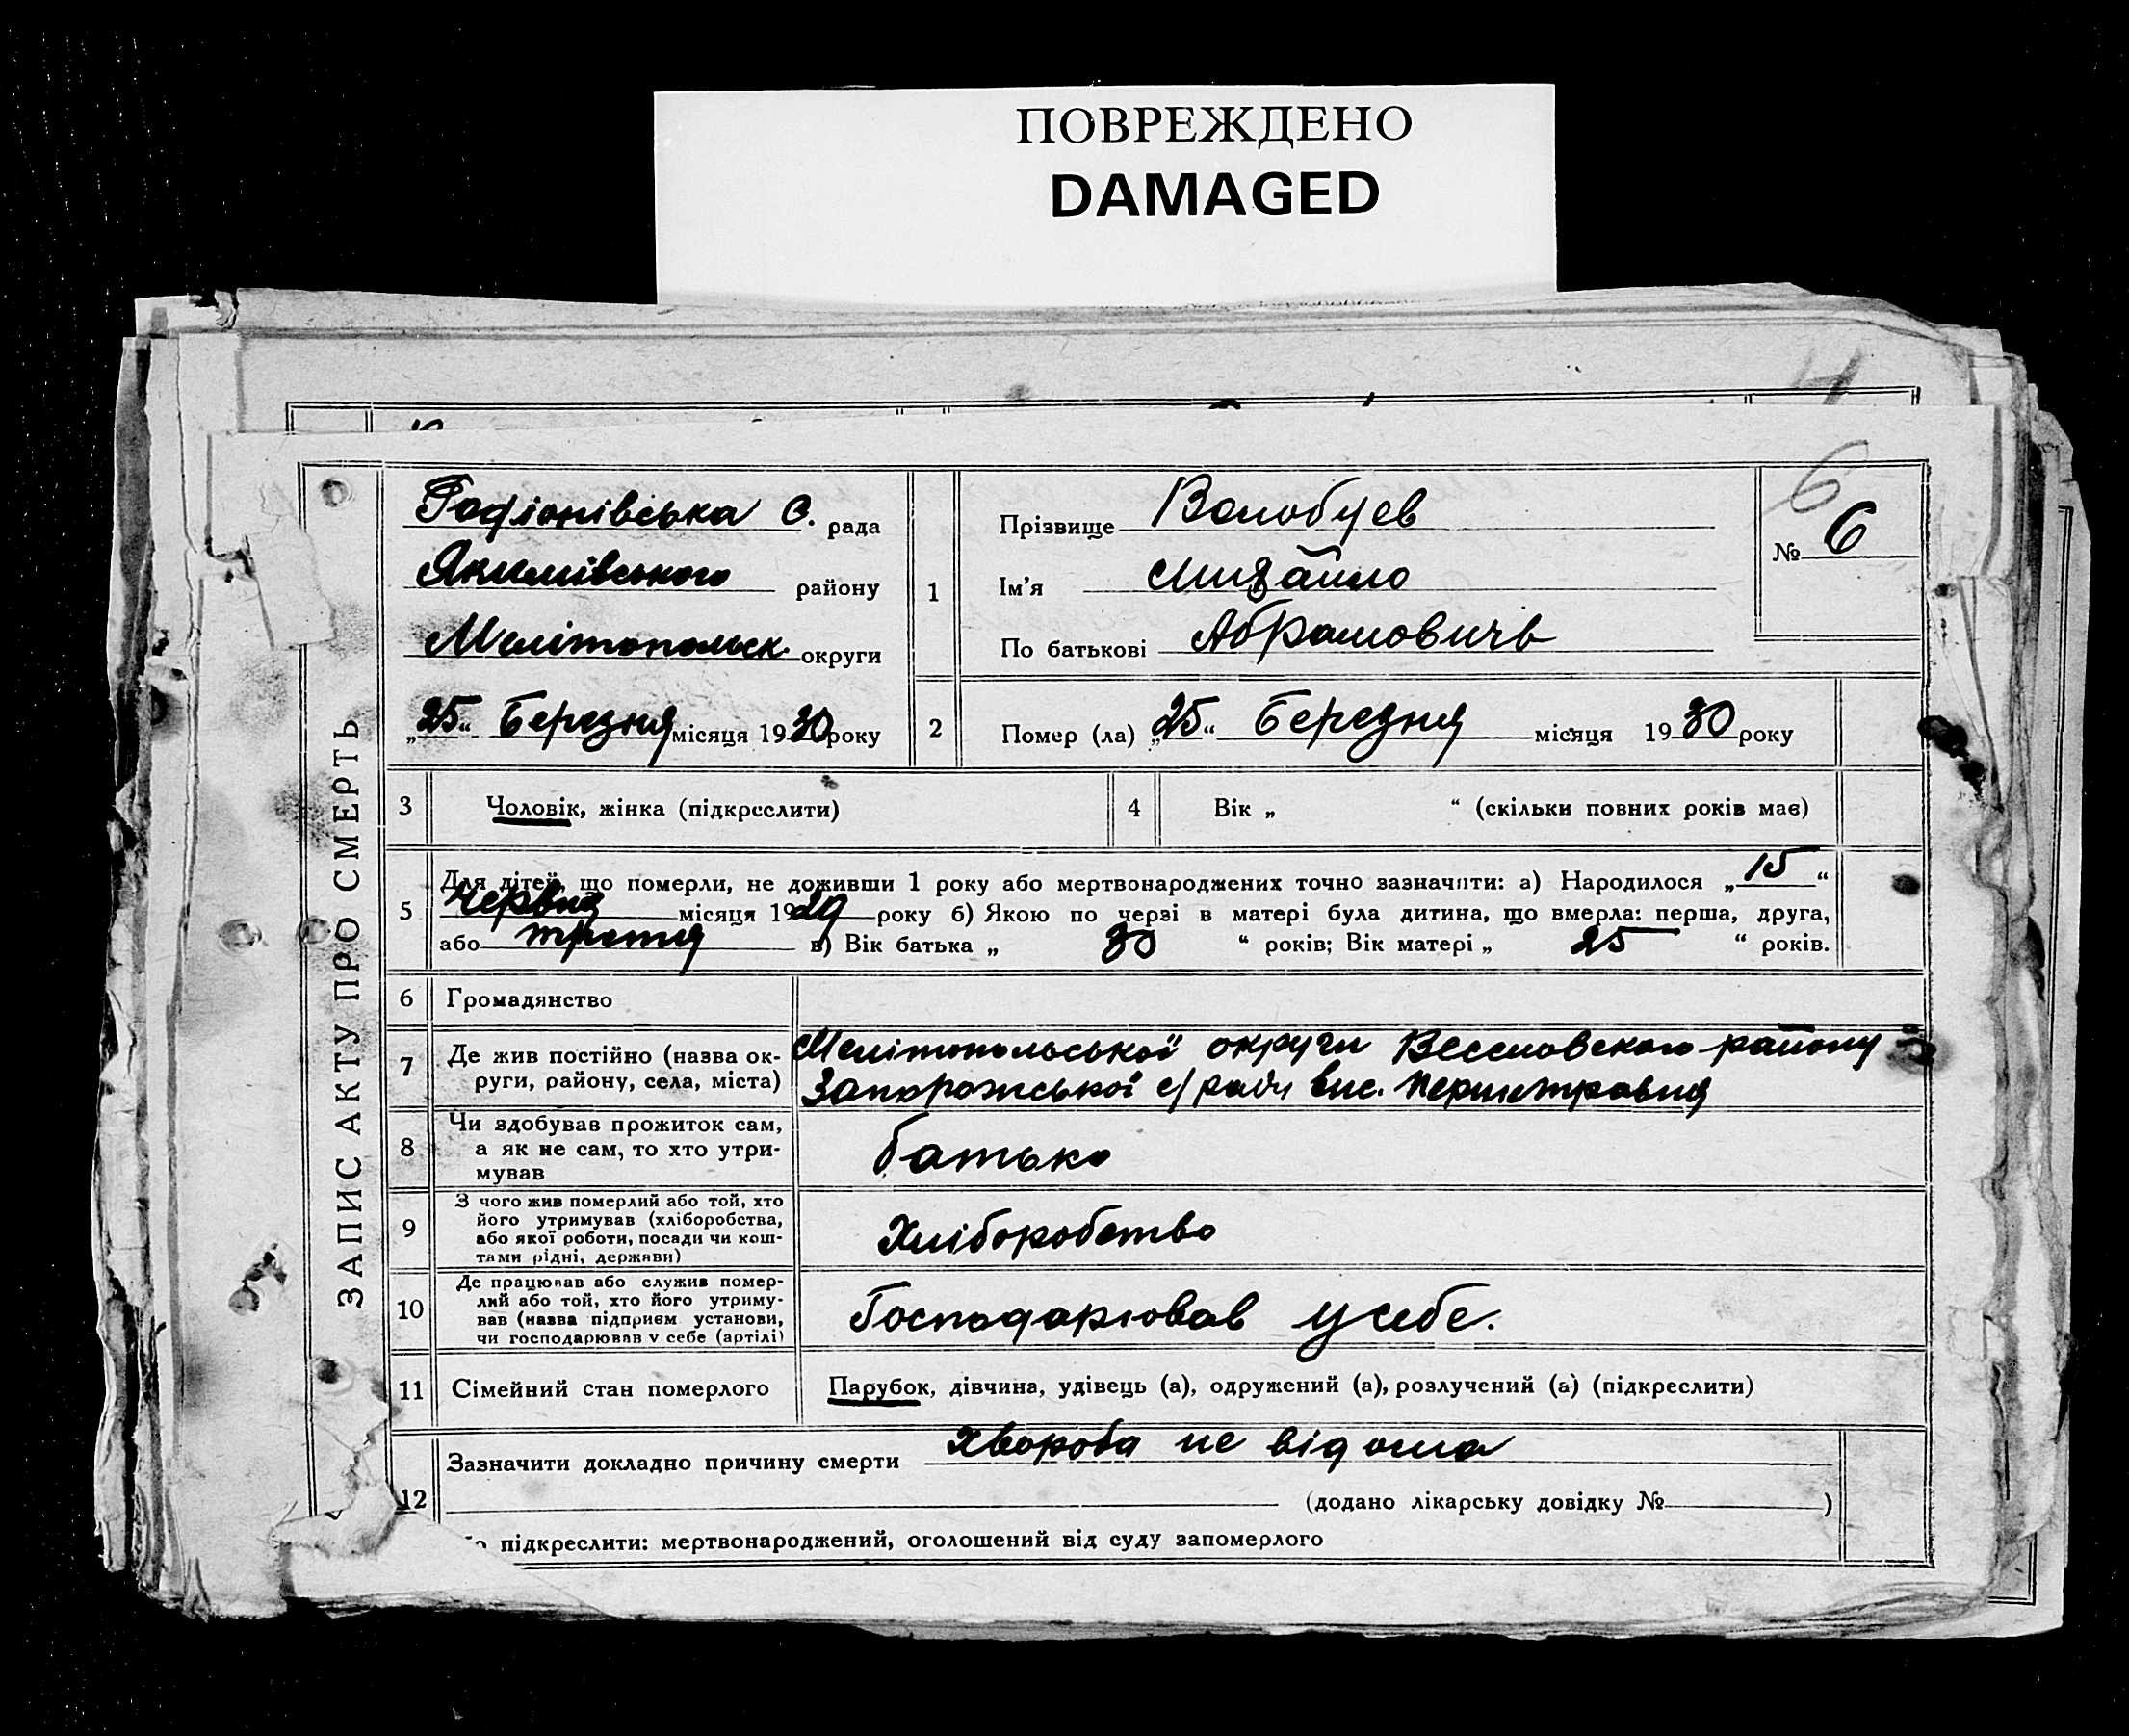 ПОВРЕЖДЕНО
DAMAGED
ЗАПИС АКТУ ПРО СМЕРТЬ
Родіонівська С. рада
Якимівського району
Мелітопольск. округи
„25“ Березня місяця 1930 року
1
Прізвище Волобуев
Ім'я Михайло
По батькові Абрамовичь
6
№ 6
2
Помер (ла) „25“ Березня місяця 1930 року
3 Чоловік, жінка (підкреслити)
4 Вік „ “ (скільки повних років має)
5 Для дітей, що померли, не доживши 1 року або мертвонароджених точно зазначити: а) Народилося „15“
червня місяця 1929 року б) Якою по черзі в матері була дитина, що вмерла: перша, друга,
або третя в) Вік батька „ 30 “ років; Вік матері „ 25 “ років.
6 Громадянство
7 Де жив постійно (назва ок-
руги, району, села, міста)
Мелітопольської округи Веселовского району
Запорожської с/ради вис. Першетравня
8 Чи здобував прожиток сам,
а як не сам, то хто утри-
мував
батько
9 З чого жив померлий або той, хто
його утримував (хліборобства,
або якої роботи, посади чи кош-
тами рідні, держави)
Хліборобство
10 Де працював або служив помер-
лий або той, хто його утриму-
вав (назва підприєм установи,
чи господарював у себе (артілі)
Господарював у себе.
11 Сімейний стан померлого
Парубок, дівчина, удівець (а), одружений (а), розлучений (а) (підкреслити)
12 Зазначити докладно причину смерти хвороба не відома
(додано лікарську довідку № )
підкреслити: мертвонароджений, оголошений від суду запомерлого